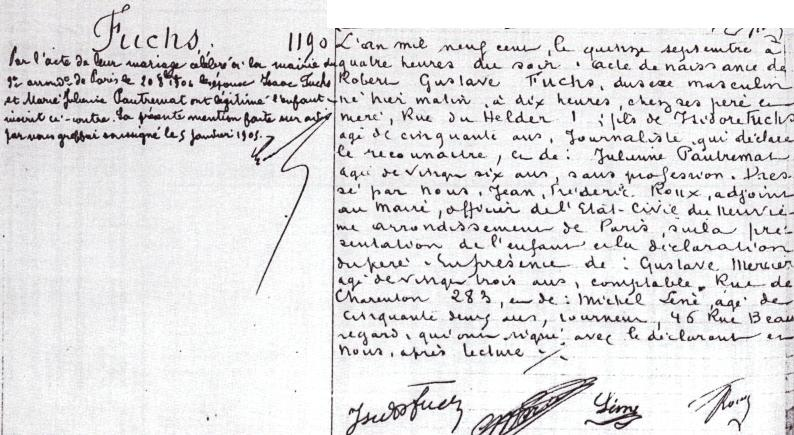 Fuchs. 1190
Par l'acte de leur mariage célébré à la mairie du
9e arrondt de Paris le 20 8bre 1904 les époux Isaac Fuchs
et Marie Julienne Pautremat ont légitimé l'enfant
inscrit ci-contre. La présente mention faite sur acte
par nous greffier soussigné le 5 Janvier 1905.
L'an mil neuf cent, le quinze septembre à
quatre heures du soir : acte de naissance de
Robert Gustave Fuchs, du sexe masculin
né hier matin, à dix heures, chez ses père et
mère, Rue du Helder 1 ; fils de Isidore Fuchs
agé de cinquante ans, Journaliste, qui déclare
le reconnaitre, et de : Julienne Pautremat
agée de vingt six ans, sans profession. Dres-
sé par nous, Jean, Frédéric Roux, adjoint
au Maire, officier de l'Etat-Civil du neuviè-
me arrondissement de Paris, sur la pré-
sentation de l'enfant et la déclaration
du père. En présence de : Gustave Mercier
agé de vingt trois ans, comptable, Rue de
Charenton 283, et de : Michel Léné, agé de
cinquante deux ans, tourneur, 46 Rue Beau
regard, qui ont signé avec le déclarant et
nous, après lecture.